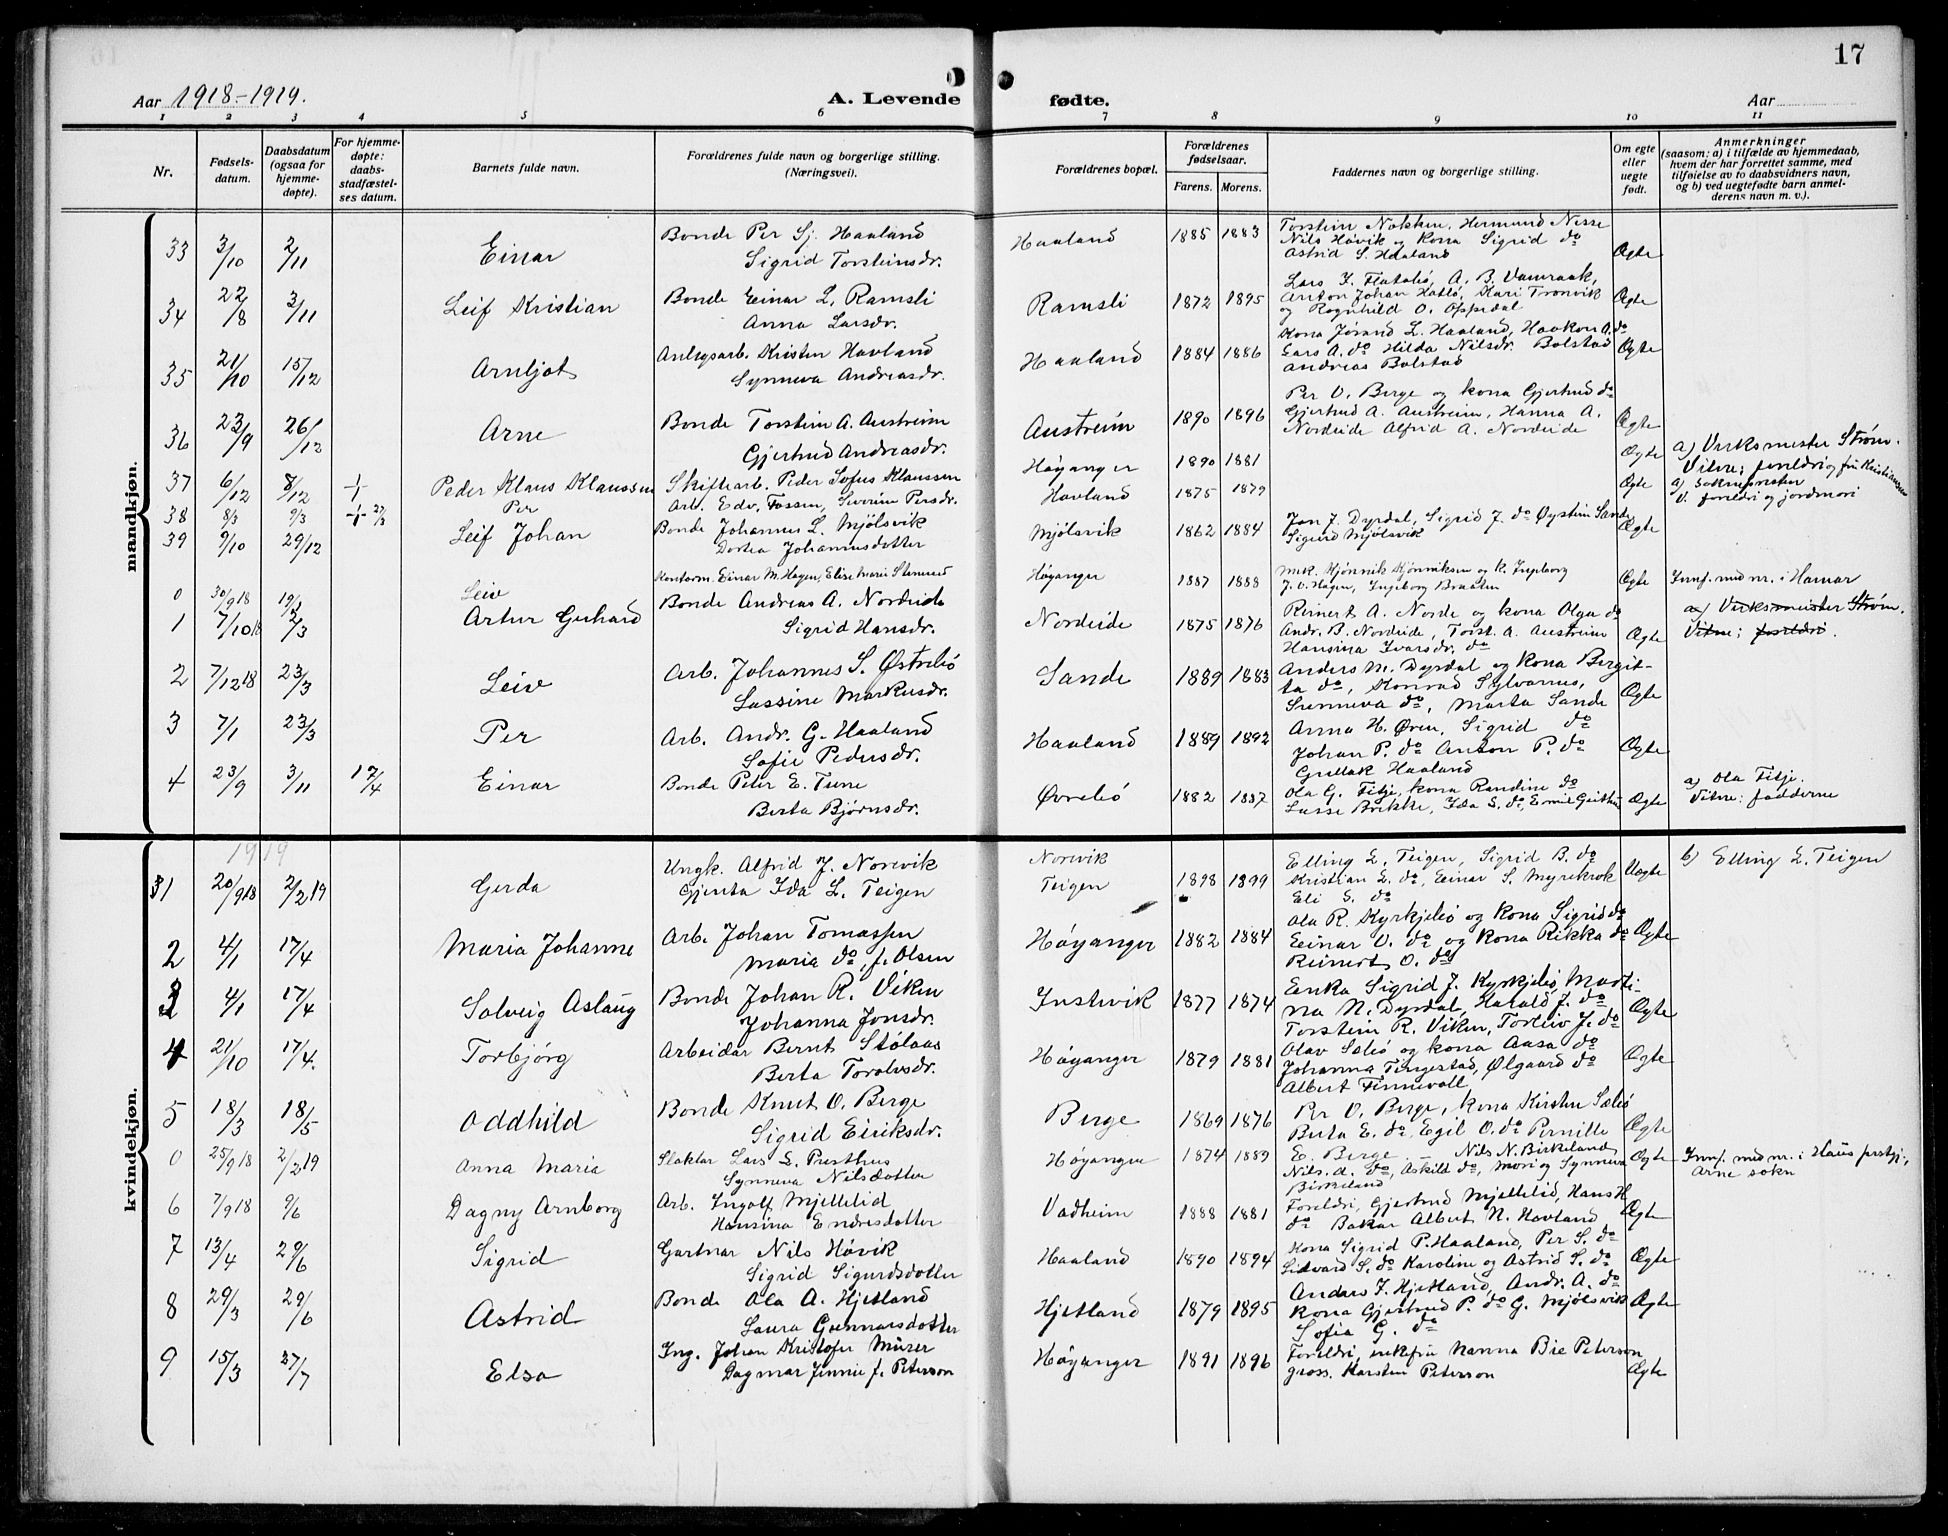 17
Aar 1918-1919.
A. Levende fødte.
Aar
1 2 3 4 5 6 7 8 9 10 11
Nr.
Fødsels-datum.
Daabsdatum (ogsaa for hjemme-døpte).
For hjemme-døpte: daabs-stadfæstel-ses datum.
Barnets fulde navn.
Forældrenes fulde navn og borgerlige stilling. (Næringsvei).
Forældrenes bopæl.
Forældrenes fødselsaar.
Farens. Morens.
Faddernes navn og borgerlige stilling.
Om egte eller uegte født.
Anmerkninger
(saasom: a) i tilfælde av hjemmedaab, hvem der har forrettet samme, med tilføielse av to daabsvidners navn, og b) ved uegtefødte barn anmel-derens navn m. v.).
mandkjøn.
33 3/10 2/11 Einar Bonde Per Sj. Haaland Haaland 1885 1883 Torstein Nokken, Hermund Nesse
Sigrid Torsteinsdr. Nils Høvik og kona Sigrid do
Astrid S. Haaland Ægte
34 22/8 3/11 Leif Kristian Bonde Einar L. Ramsli Ramsli 1872 1895 Lars I. Flatebø, A. B. Vamraak,
Anna Larsdr. Anton Johan Hatlø, Kari Tronvik Ægte
og Ragnhild O. Oppedal
35 21/10 15/12 Arnljot Anlegsarb. Kristen Havland Haaland 1884 1886 Kona Jørand L. Haaland, Haakon A. do
Synneva Andreasdr. Lars A. do Hilda Nilsdr. Bolstad Ægte
Andreas Bolstad
36 23/9 26/12 Arne Bonde Torstein A. Austreim Austreim 1890 1896 Per O. Berge og kona Gjertrud do
Gjertrud Andreasdr. Gjertrud A. Austreim, Hanna A. Ægte
Nordeide Alfrid A. Nordeide
37 6/12 8/12 Peder Klaus Klaussen Skiftearb. Peder Sofus Klaussen Høyanger 1890 1881 Ægte a) Verksmester Strøm.
Vitne: foreldri og frk Kristiansen
38 8/3 9/3 27/3 Per Arb. Edv. Fossen, Severine Persdr. Havland 1875 1879 Ægte a) Soknepresten
V. foreldri og jordmori
39 9/10 29/12 Leif Johan Bonde Johannes L. Mjølsvik Mjølsvik 1862 1884 Jon J. Dyrdal, Sigrid J. do Øystein Sande Ægte
Dortea Johannesdotter Sigurd Mjølsvik
0 30/9 18 19/1 Leiv Kontorm. Einar M. Hagen, Elise Marie Stenrud Høyanger 1887 1888 Mek. Kjønnik Kjønniksen og k. Ingeborg Ægte Innf. med nr. i Hamar
J. O. Hagen, Ingeborg Braaten
1 7/10 18 2/3 Artur Gerhard Bonde Andreas A. Nordeide Nordeide 1875 1876 Reinert A. Norde og kona Olga do a) Verksmeister Strøm.
Sigrid Hansdr. Andr. B. Nordeide, Torst. A. Austreim Ægte Vitne: foreldri.
Hansina Ivarsdr. do
2 7/12 18 23/3 Leiv Arb. Johannes S. Østrebø Sande 1889 1883 Anders M. Dyrdal og kona Bergit-
Lassine Markusdr. ta do, Konrad Sylvarnes, Ægte
Srenneva do, Marta Sande
3 7/1 23/3 Per Arb. Andr. G. Haaland Haaland 1889 1892 Anna H. Øren, Sigrid do
Sofie Pedersdr. Johan P. do Anton P. do Ægte
Gullak Haaland
4 23/9 3/11 17/4 Einar Bonde Peter E. Tune Øvrebø 1882 1887 Ola G. Fitje, kona Randine do a) Ola Fitje.
Berta Bjørnsdr. Lasse Brekke, Ida S. do, Emil Geithus Ægte Vitne: fadderne
kvindekjøn.
1919
31 20/9 18 2/2 19 Gerda Ungk. Alfrid J. Norevik Norevik 1898 1899 Elling L. Teigen, Sigrid B. do b) Elling L. Teigen
Gjenta Ida L. Teigen Teigen Kristian L. do, Einar S. Myrekrok Uegte
Eli S. do
2 4/1 17/4 Maria Johanne Arb. Johan Tomassen Høyanger 1882 1884 Ola R. Kyrkjebø og kona Sigrid do
Maria do, f. Olsen Einar O. do og kona Rikka do Ægte
Reinert O. do
3 4/1 17/4 Solveig Aslaug Bonde Johan R. Viken Instevik 1877 1874 Enka Sigrid J. Kyrkjebø, Marti-
Johanna Jonsdr. na N. Dyrdal, Harald J. do Ægte
Torstein R. Viken, Torleiv J. do
4 21/10 17/4. Torbjørg Arbeidar Bernt Stølaas Høyanger 1879 1881 Olav Sæbø og kona Aasa do Ægte
Berta Toralvsdr. Johanna Tingestad, Ølgaard do
Albert Finnevoll
5 18/3 18/5 Oddhild Bonde Knut O. Berge Berge 1869 1876 Per O. Berge, kona Kirsten Sæbø
Sigrid Eiriksdr. Berta E. do, Egil O. do Pernille Ægte
E. Berge
0 25/9 18 2/2 19 Anna Maria Slaktar Lars L. Presthus Høyanger 1874 1889 Nils N. Birkeland Ægte Innf. med nr. i Haus prstgj.,
Synneva Nilsdotter Nils. A. do, Askild do, Mari og Synneva Arne sokn
Birkeland
6 7/9 18 9/6 Dagny Arnborg Arb. Ingolf Mjellelid Vadheim 1888 1881 Foreldri, Gjertrud Mjellelid, Hans H.
Hansina Endresdotter do Bakar Albert N. Havland Ægte
7 13/4 29/6 Sigrid Gartnar Nils Høvik Haaland 1890 1894 Kona Sigrid P. Haaland, Per S. do
Sigrid Sigurdsdotter Sidvard S. do Karoline og Astrid S. do Ægte
8 29/3 29/6 Astrid Bonde Ola A. Hjetland Hjetland 1879 1895 Anders I. Hjetland, Andr. A. do
Laura Gunnarsdotter kona Gjertrud P. do G. Mjølsvik Ægte
Sofia G. do
9 15/3 27/7 Elsa Ing. Johan Kristofer Mürer Høyanger 1891 1896 Foreldri, enkefru Nanna Bie Peterson
Dagmar Jennie f. Peterson gross. Karsten Peterson Ægte